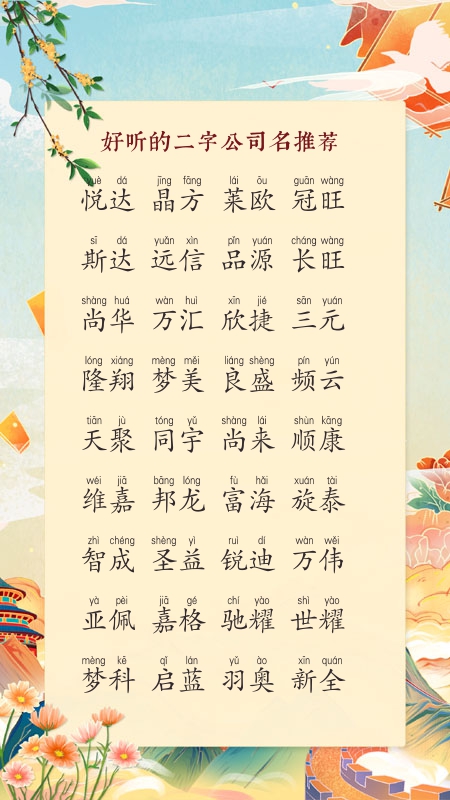 好听的二字公司名推荐
yuè dá jīng fāng lái ōu guān wàng
悦达 晶方 莱欧 冠旺
sī dá yuǎn xìn pǐn yuán cháng wàng
斯达 远信 品源 长旺
shàng huá wàn huì xīn jié sān yuán
尚华 万汇 欣捷 三元
lóng xiáng mèng měi liáng shèng pín yún
隆翔 梦美 良盛 频云
tiān jù tóng yǔ shàng lái shùn kāng
天聚 同宇 尚来 顺康
wéi jiā bāng lóng fù hǎi xuán tài
维嘉 邦龙 富海 旋泰
zhì chéng shèng yì ruì dí wàn wěi
智成 圣益 锐迪 万伟
yà pèi jiā gé chí yào shì yào
亚佩 嘉格 驰耀 世耀
mèng kē qǐ lán yǔ ào xīn quán
梦科 启蓝 羽奥 新全